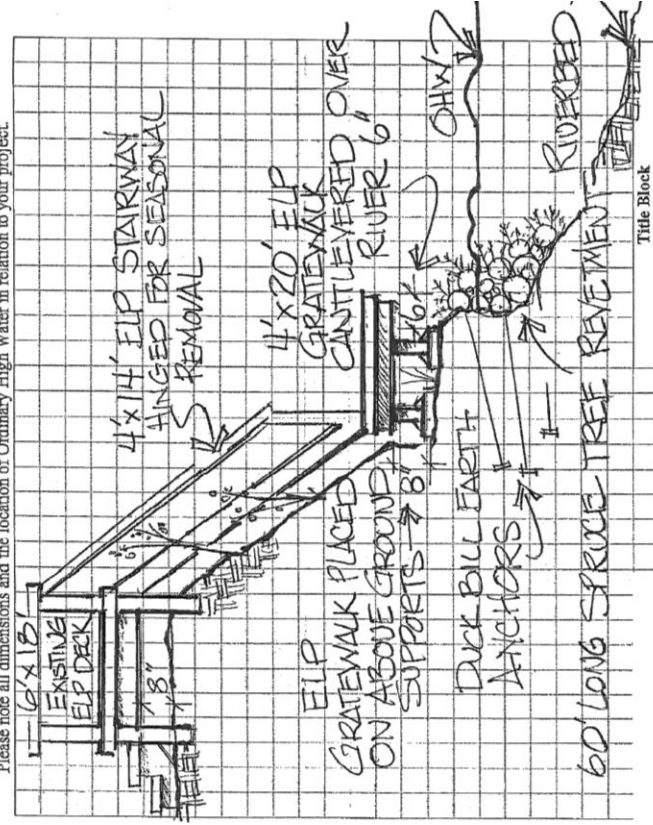 Please note all dimensions and the location of Ordinary High Water in relation to your project.
6'x18'
EXISTING
ELP DECK
8"
4'x14' ELP STAIRWAY
HINGED FOR SEASONAL
REMOVAL
4'x20' ELP
GRATEWALK
CANTILEVERED OVER
RIVER 6"
ELP
GRATEWALK PLACED
ON ABOVE GROUND
SUPPORTS → 8"
6"
OHW
DUCK BILL EARTH
ANCHORS
RIVERBED
60' LONG SPRUCE TREE REVETMENT
Title Block